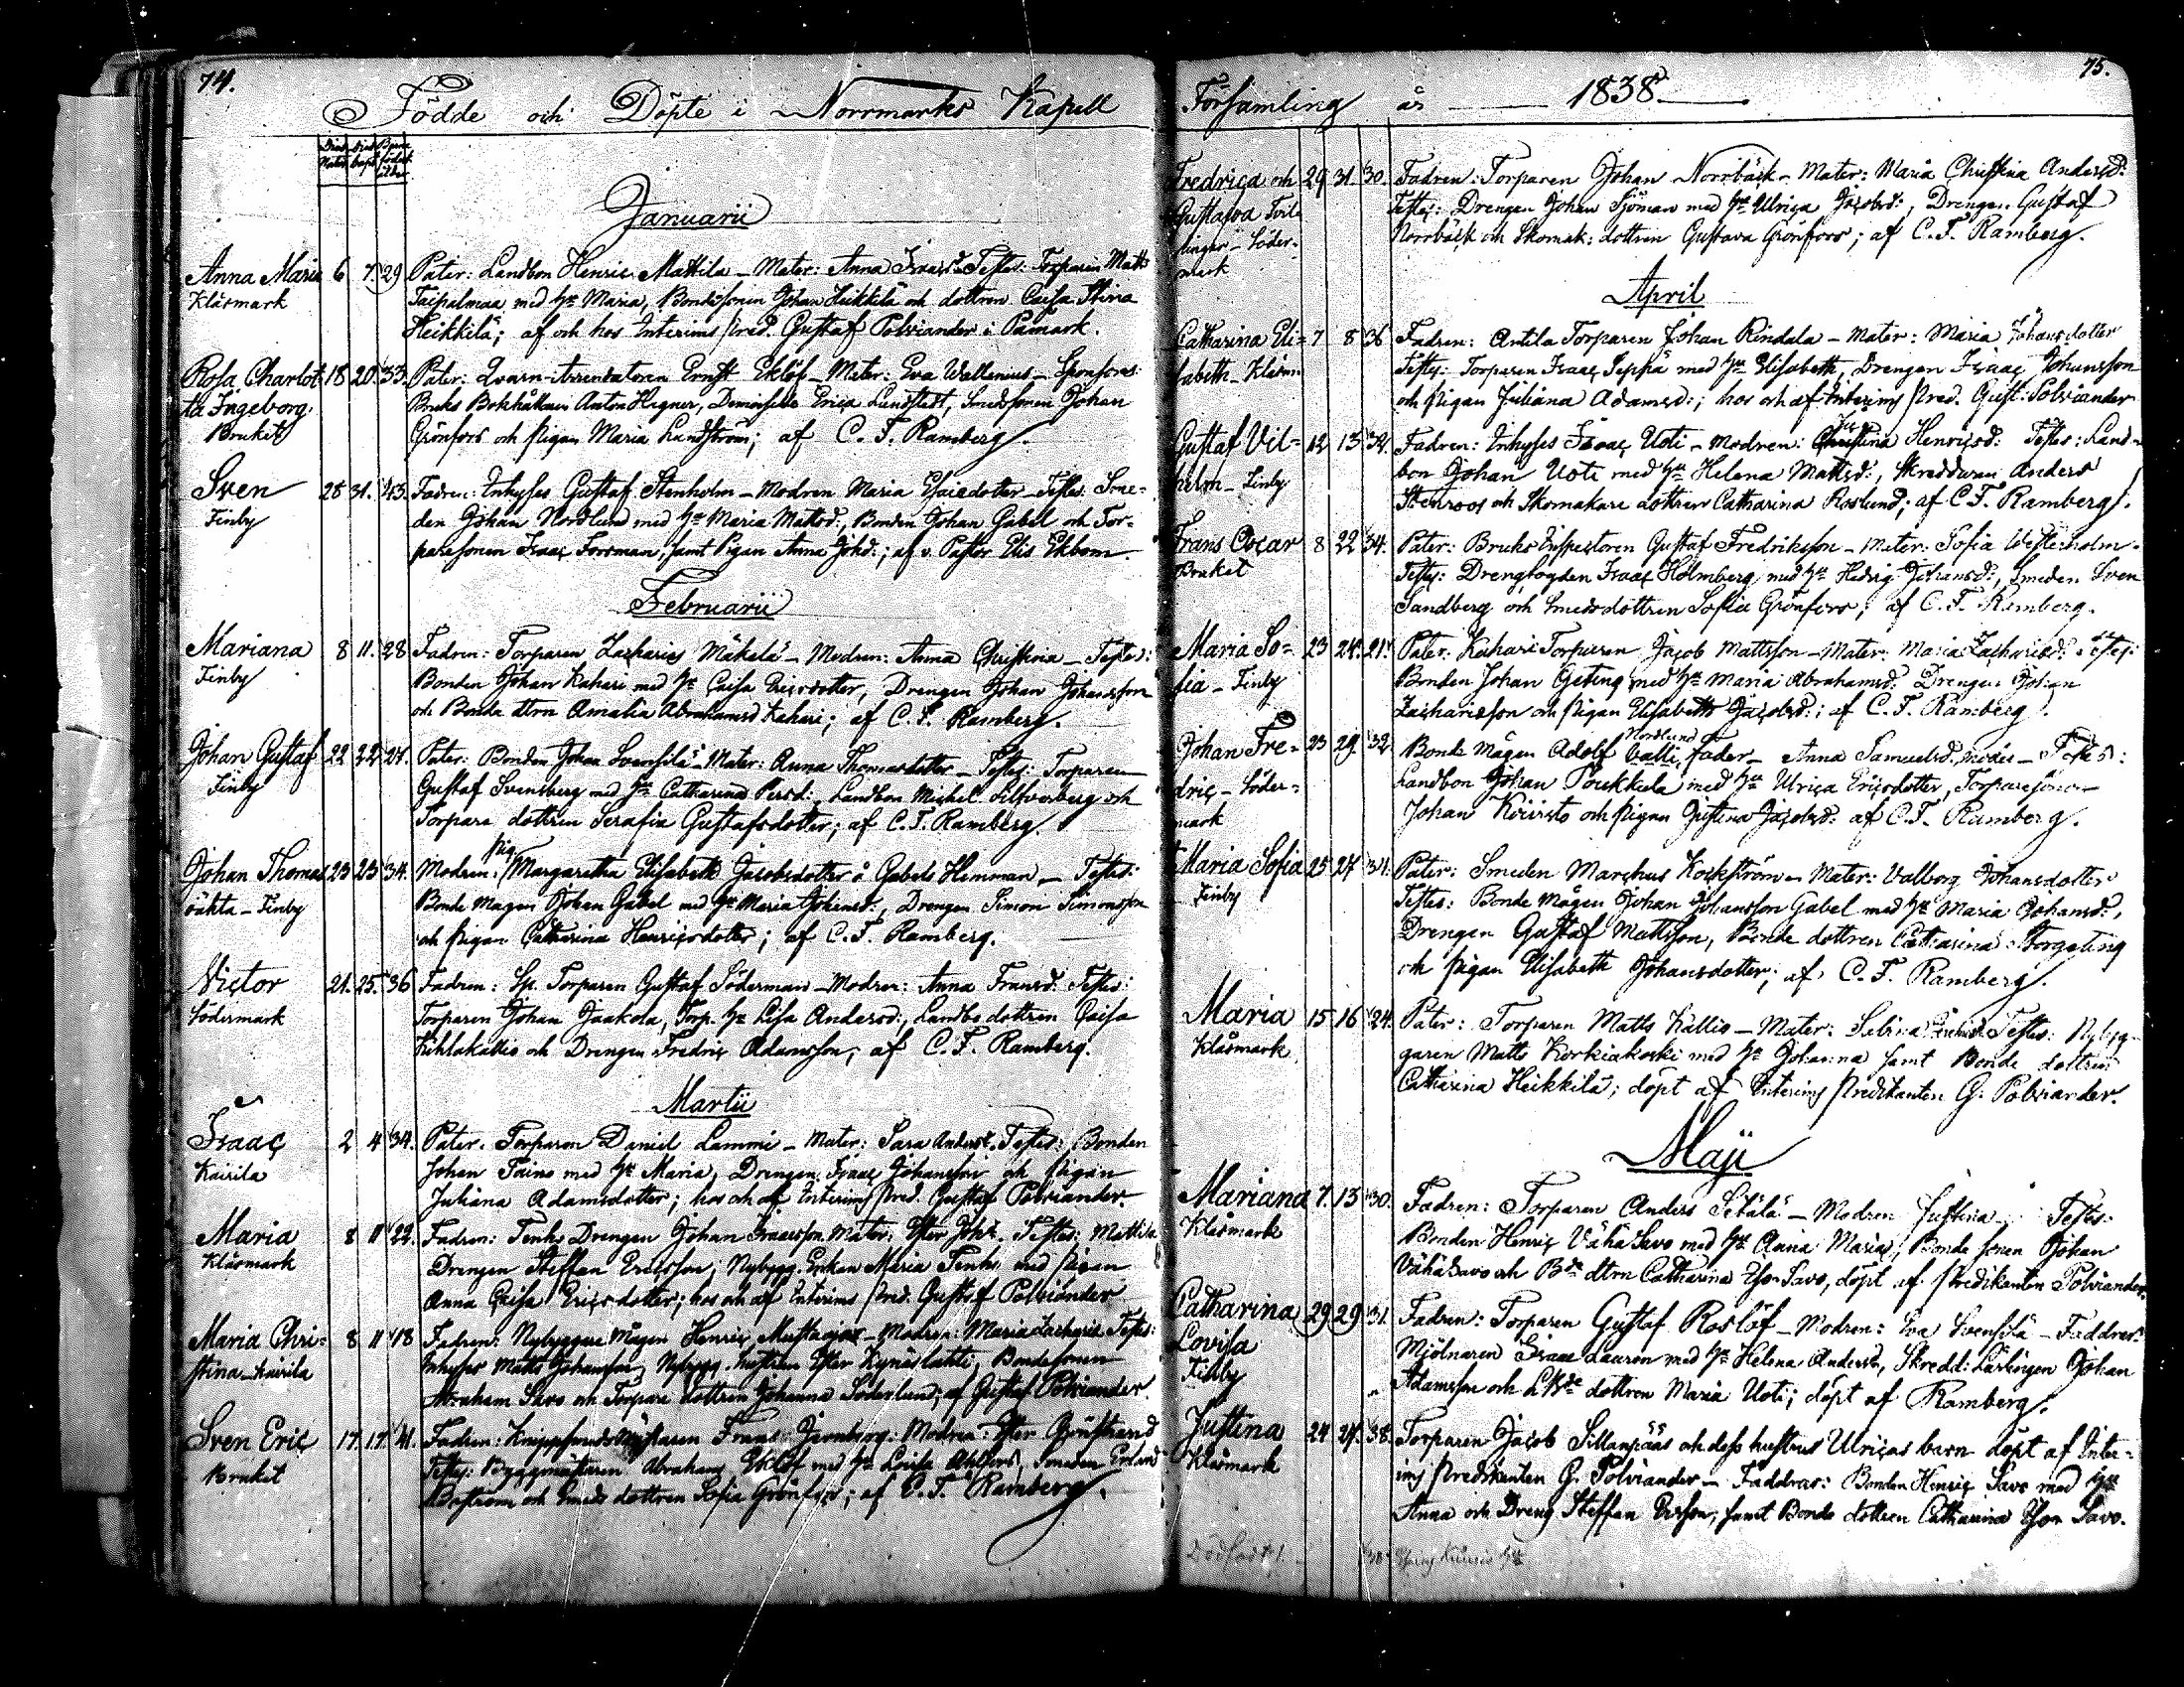 74.
Födde och Döpte i Norrmarks Kapell
Januarii
Anna Maria 6 7. 29 Pater: Landbon Henric Mattila - Mater: Anna Isacsd. Testes: Torparen Matts
Klåsmark med hu Maria, Bondesonen Johan Heikkilä och dottren Caisa Stina
Heikkilä; af och hos Interims Pred. Gustaf Polviander i Påmark.
Rosa Charlot- 18 20. 33. Pater: Qvarn-Arrendatoren Ernst Eklöf - Mater: Eva Wallenius - Sponsores:
ta Ingeborg. Bruks Bokhållaren Anton Hagner, Demoiselle Erica Lundstedt, Smedsonen Johan
Bruket Grönfors och Pigan Maria Lundström; af C. F. Ramberg.
Sven 28 31. 43. Fadren: Inhyses Gustaf Stenholm - Modren Maria Esaiedotter - Testes: Sme-
Finby den Johan Nordlund med hu Maria Mattsd:, Bonden Johan Gabel och Tor-
paresonen Isaac Forsman, samt Pigan Anna Johd:; af v. Pastor Elis Ekbom.
Februarii
Mariana 8 11. 28 Fadren: Torparen Zacharias Mäkelä - Modren: Anna Christina - Testes:
Finby Bonden Johan Kahari med hu Caisa Ericsdotter, Drengen Johan Johansson
och Bonde dtren Amalia Abrahamsd Kahari; af C. F. Ramberg.
Johan Gustaf 22 22 27. Pater: Bonden Johan Svensilä - Mater: Anna Thomasdotter - Testes: Torparen
Finby Gustaf Svensberg med hu Catharina Persd:, Landbon Michel Silfverberg och
Torpare dottren Serafia Gustafsdotter; af C. F. Ramberg.
Johan Thomas 23 23 34. Modren: Pig. Margaretha Elisabeth Jacobsdotter å Gabels Hemman - Testes:
oäkta - Finby Bonde Mågen Johan Gabel med hu Maria Johansd:, Drengen Simon Simonsson
och Pigan Catharina Henricsdotter; af C. F. Ramberg.
Victor 21. 25. 36 Fadren: Sp. Torparen Gustaf Söderman - Modren: Anna Fransd: Testes:
Södermark Torparen Johan Jaakola, Torp. hu Lisa Andersd:, Landbo dottren Caisa
Kihlakallio och Drengen Fredric Adamsson; af C. F. Ramberg.
Martii
Isaac 2 4 34. Pater. Torparen Daniel Lammi - Mater: Sara Andersd. Testes: Bonden
Kairila Johan Taino med hu Maria, Drengen Isaac Johansson och Pigan
Juliana Adamsdotter; hos och af Interims Pred. Gustaf Polviander.
Maria 8 11 22. Fadren: Tenhs Drengen Johan Isaacsson. Mater: Ester Johd. Testes: Mattila
Klåsmark Drengen Steffan Ericsson, Nybygg. Enkan Maria Tenhi med Pigan
Anna Caisa Ericsdotter; hos och af Interims Pred. Gustaf Polviander
Maria Chri- 8 11 18 Fadren: Nybyggare Mågen Henric Mustaojas - Modren: Maria Zachariæ Testes:
stina - Kairila Inhyses Matts Johansson, Nybygg. hustrun Ester Kynäslahti, Bondesonen
Abraham Savo och Torpare dottren Johanna Söderlund; af Gustaf Polviander.
Sven Eric 17. 17. 41. Fadren: Frans Jernberg. Modren: Ester Grönstrand
Bruket Testes: Byggmästaren Abraham Eklöf med hu Lovisa Smeden
Boström och Smeds dottren Sofia Grönfors; af C. F. Ramberg.
75.
Församling år 1838.
Fredrica och 29 31. 30. Fadren: Torparen Johan Norrbäck - Mater: Maria Christina Andersd:
Gustafva Tvil- Testes: Drengen Johan Sjöman med hu Ulrica Jacobsd:, Drengen Gustaf
lingar - Söder- Norrbäck och Skomak: dottren Gustava Grönfors; af C. F. Ramberg.
mark
April
Catharina Eli- 7 8 36 Fadren: Antila Torparen Johan Rindala - Mater: Maria Johansdotter
sabeth - Klåsm. Testes: Torparen Isaac Seppä med hu Elisabeth, Drengen Isaac Johansson
och Pigan Juliana Adamsd:; hos och af Interims Pred. Gust: Polviander
Gustaf Vil- 12 13 32. Fadren: Inhyses Isaac Uoti - Modren: Henricsd: Testes: Land-
helm - Finby bon Johan Uoti med hu Helena Mattsd:, Skreddaren Anders
Stenroos och Skomakare dottren Catharina Roslund; af C. F. Ramberg.
Frans Oscar 8 22 34. Pater: Bruks Inspectoren Gustaf Fredriksson - Mater: Sofia Westerholm -
Bruket Testes: Drengfogden Isaac Holmberg med hu Hedvig Johansd:, Smeden Sven
Sandberg och Smedsdottren Sofia Grönfors; af C. F. Ramberg.
Maria So- 23 24. 21. Pater: Kahari Torparen Jacob Mattsson - Mater: Maria Zachariæd: Testes:
fia - Finby Bonden Johan Geting med hu Maria Abrahamsd: Drengen Johan
Zachariasson och Pigan Elisabeth Jacobsd:; af C. F. Ramberg.
Johan Fre- 23 29. 32 Bonde Mågen Adolf Valli Nordlund fader - Anna Samuelsd. moder - Testes:
dric - Söder- Landbon Johan Poukkula med hu Ulrica Ericsdotter, Torparesonen
mark Johan Koivisto och Pigan Justina Jacobsd: af C. F. Ramberg.
Maria Sofia 25 27 31. Pater: Smeden Marchus Kockström - Mater: Valborg Johansdotter
Finby Testes: Bonde Mågen Johan Johansson Gabel med hu Maria Johansd:,
Drengen Gustaf Mattsson, Bonde dottren Catharina Storgeting
och Pigan Elisabeth Johansdotter; af C. F. Ramberg.
Maria 15 16 24. Pater: Torparen Matts Kallio - Mater: Sabina Testes: Nybyg-
Klåsmark. garen Matts Korkiakoski med hu Johanna samt Bonde dottren
Catharina Heikkilä; döpt af Interims Predikanten G. Polviander.
Maji
Mariana 7. 13 30. Fadren: Torparen Anders Setälä - Modren Justina - Testes:
Klåsmark Bonden Henric Vähä Savo med hu Anna Maria, Bonde sonen Johan
Vähä Savo och Bde dtren Catharina Yso Savo, döpt af Predikanten Polviander.
Catharina 29 29 31. Fadren: Torparen Gustaf Roslöf - Modren: Eva Svensilä - Faddrar:
Lovisa Mjölnaren Isaac Lauren med hu Helena Andersdr, Skredd: Lärlingen Johan
Finby Adamsson och dottren Maria Uoti; döpt af Ramberg.
Justina 24 27. 38. Torparen Jacob Sillanpääs och dess hustrus Ulricas barn döpt af Inter-
Klåsmark ims Predikanten G. Polviander - Faddrar: Bonden Henric Savo med hu
Anna och Dreng Steffan Ersson, samt Bonde dottren Catharina Yson Savo.
Dödfödt 1.